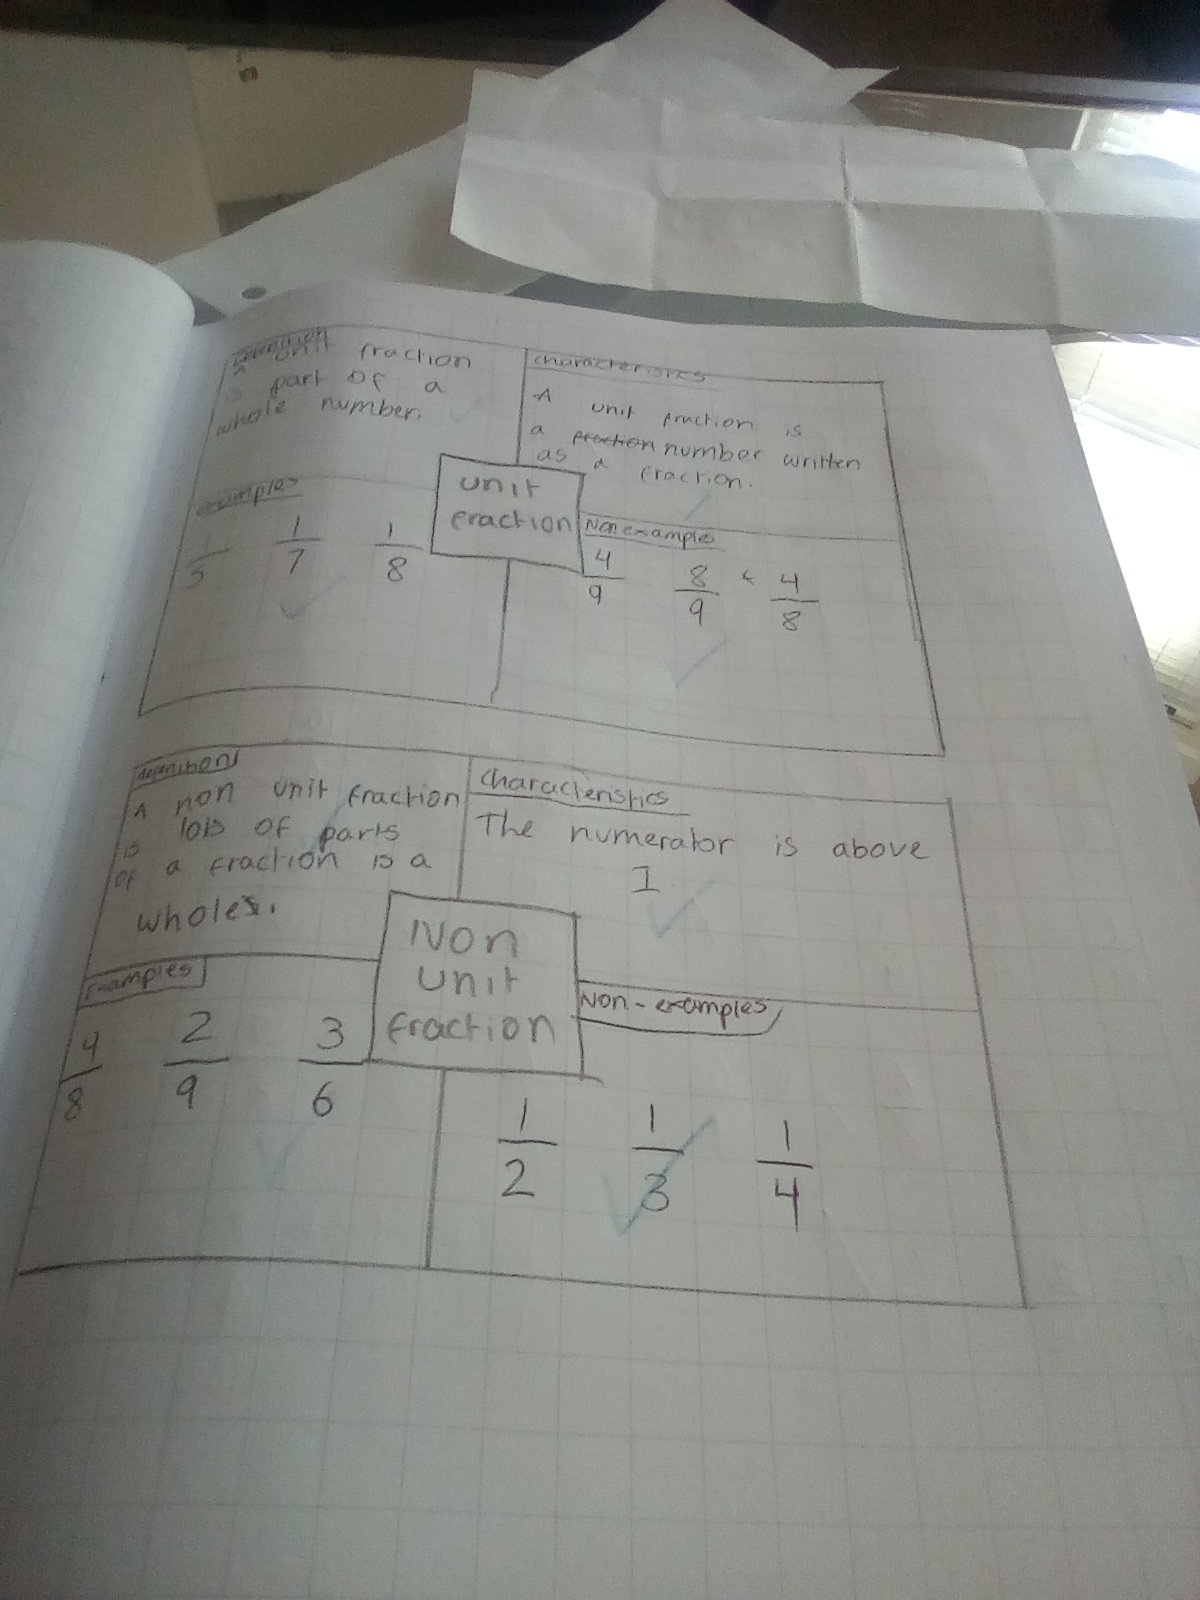 Definition
A unit fraction
is part of a
whole number.
characteristics
A unit fraction is
a fraction number written
as a fraction.
unit
fraction
examples
5
1
7
1
8
Non examples
4
9
8
9
4
8
definition
A non unit fraction
is lots of parts
of a fraction is a
wholes.
Characteristics
The numerator is above
1
Non
unit
fraction
Examples
4
8
2
9
3
6
Non-examples
1
2
1
3
1
4